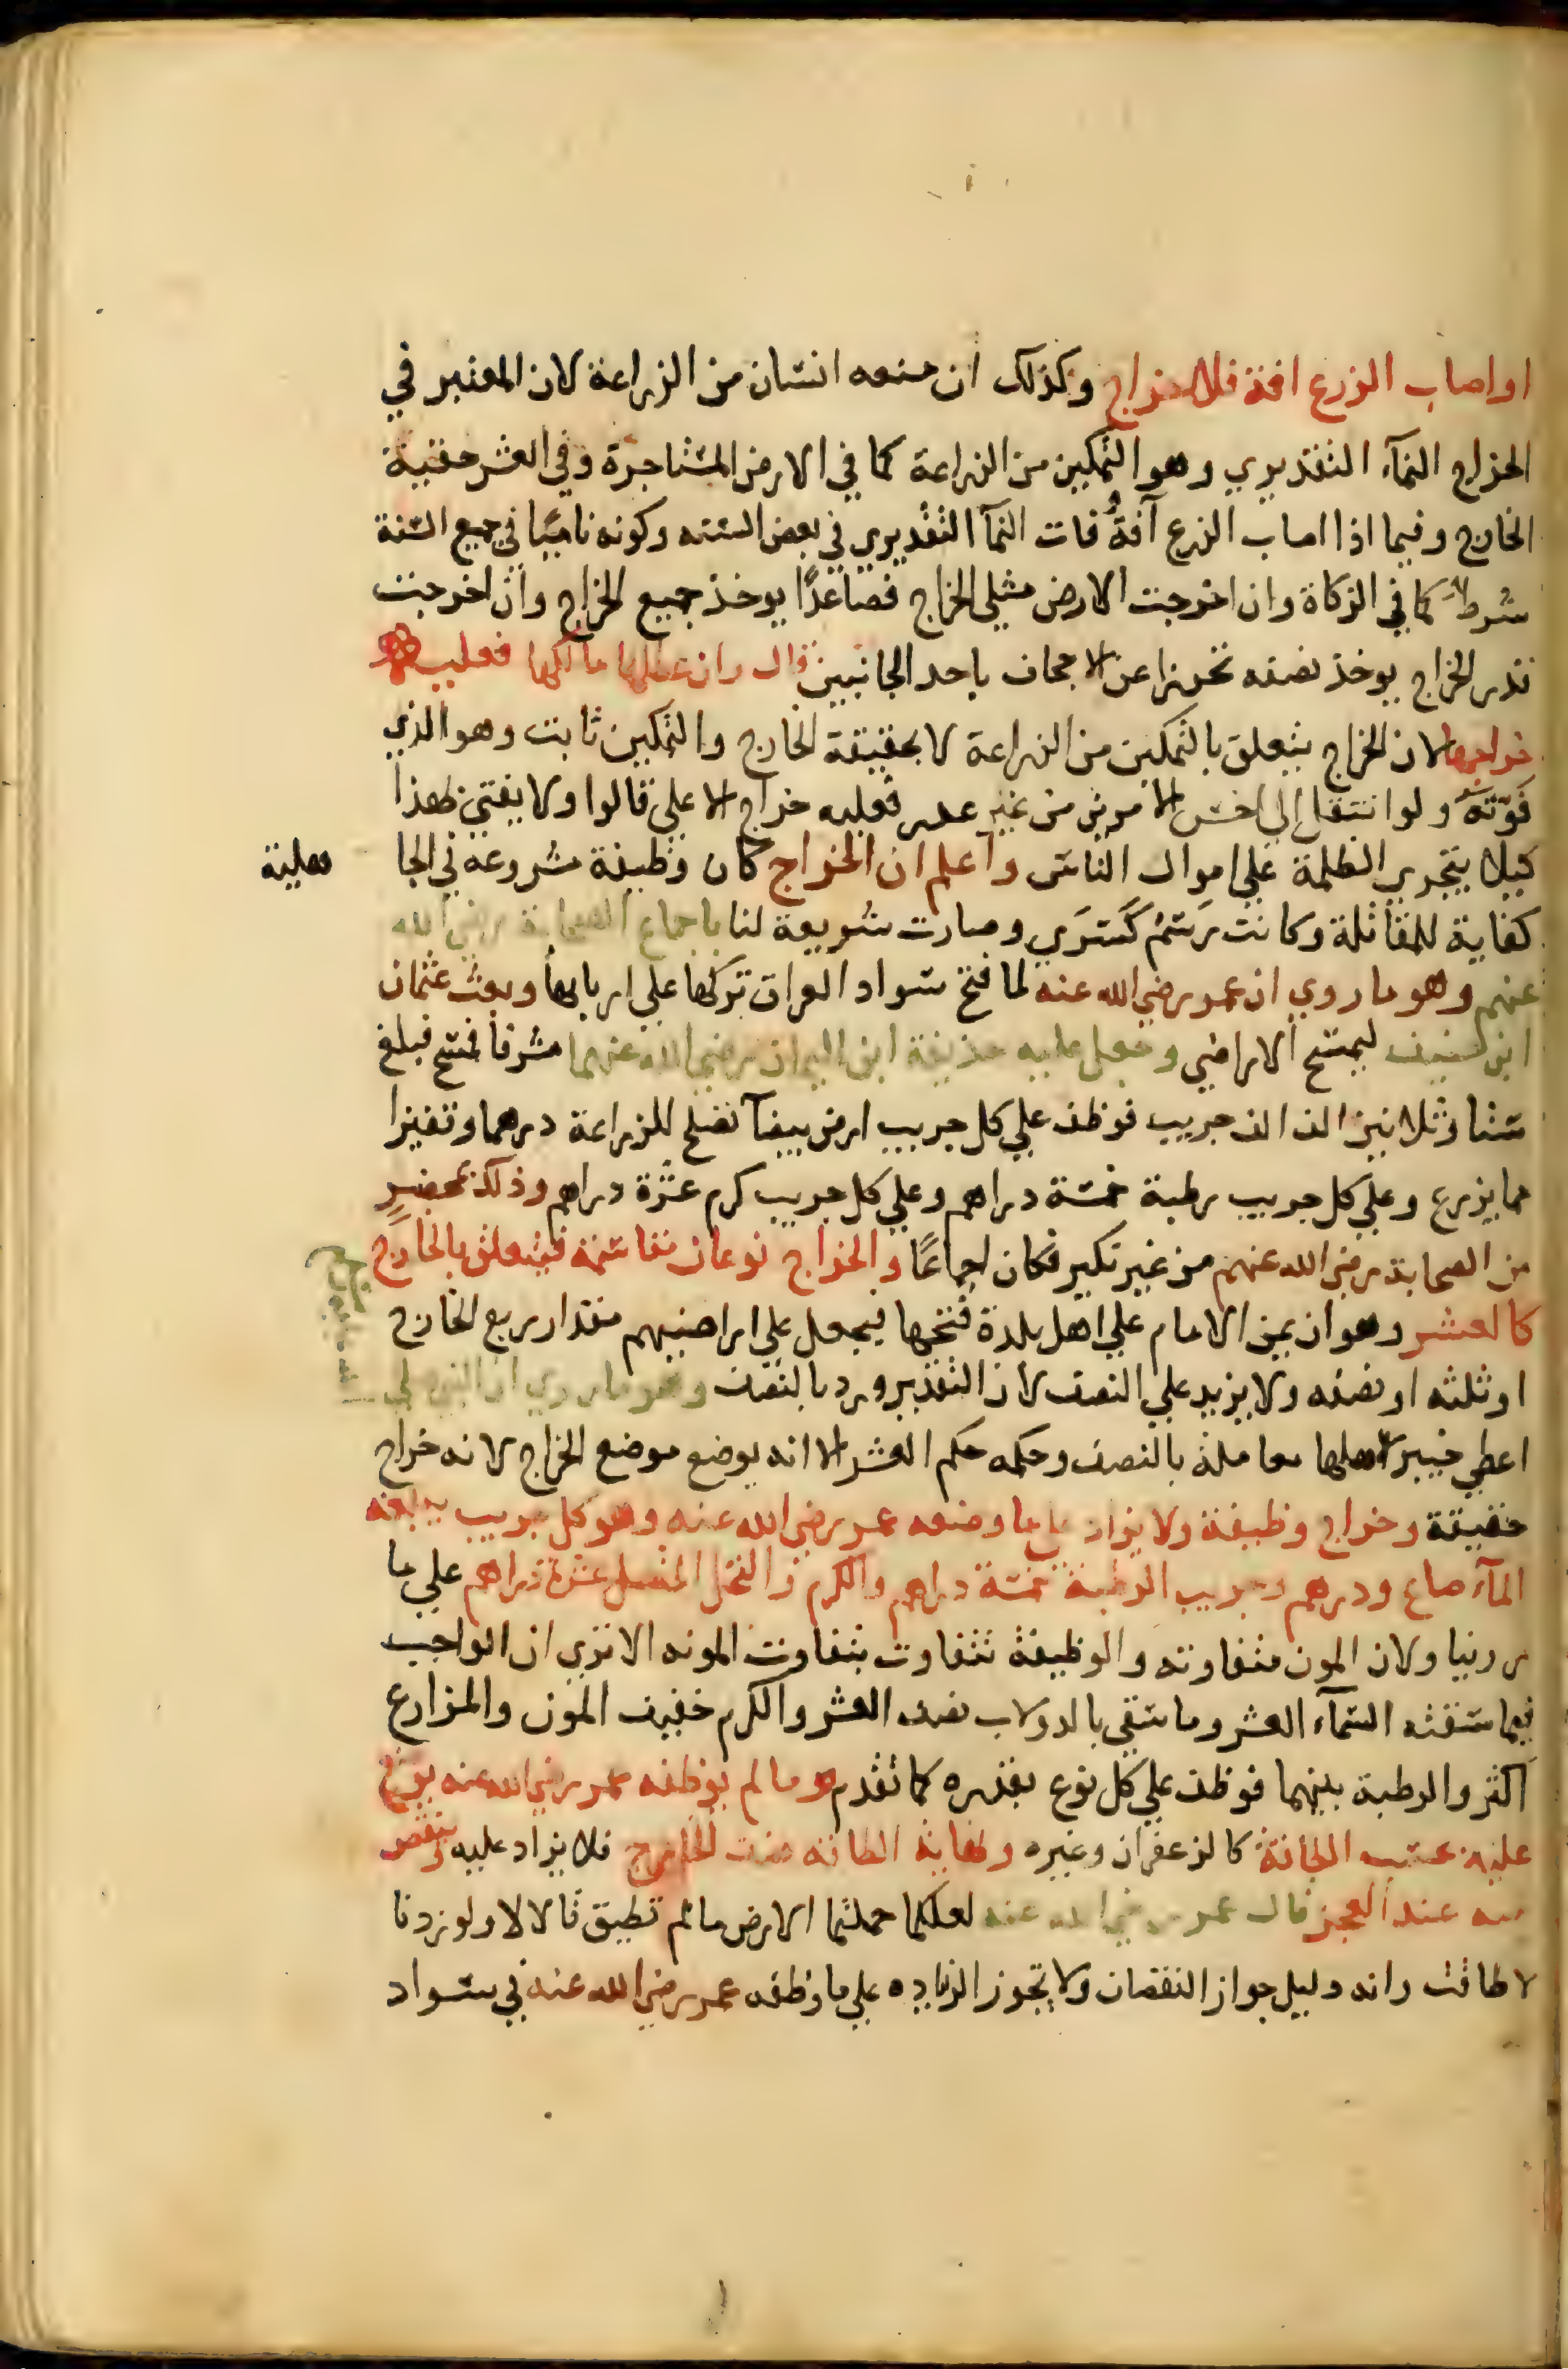 او اصاب الزرع افة فلا خراج وكذلك ان منعه انسان من الزراعة لان المعتبر في
الخراج النمآء التقديري وهو التمكين من الزراعة كما في الارض المستاجرة وفي العشر حقيقة
الخارج وفيما اذا اصاب الزرع آفة فات النمآ التقديري في بعض السنه وكونه ناميًا في جميع السنة
شرط كما في الزكاة وان اخرجت الارض مثلي الخراج فصاعدًا يوخذ جميع الخراج وان اخرجت
قدر الخراج يوخذ نصفه تحرزا عن الاجحاف باحد الجانبين قال وان عطلها مالكها فعليه
خراجها لان الخراج يتعلق بالتمكين من الزراعة لا بحقيقة الخارج والتمكين ثابت وهو الذي
فوّته ولو انتقل الي اخس الامرين من غير عذر فعليه خراج الاعلي قالوا ولا يفتي بهذا
كيلا يتجري الظلمة علي اموال الناس واعلم ان الخراج كان وظيفة مشروعه في الجا
هلية
كفاية للمقاتلة وكانت رسم كسري وصارت شريعة لنا باجماع الصحابة رضي الله
عنهم وهو ما روي ان عمر رضي الله عنه لما فتح سواد العراق تركها علي اربابها وبعث عثمان
ابن حنيف ليمسح الاراضي وجعل عليه حذيفة ابن اليمان رضي الله عنهما مشرفا فمسح فبلغ
ستا وثلاثين الف الف جريب فوظف علي كل جريب ارض بيضآ تصلح للزراعة درهما وقفيزا
مما يزرع وعلي كل جريب رطبة خمسة دراهم وعلي كل جريب كرم عشرة دراهم وذلك بمحضرٍ
من الصحابة رضي الله عنهم من غير نكير فكان اجماعًا والخراج نوعان مقاسمة فيتعلق بالخارج
كالعشر وهو ان يمن الامام علي اهل بلدة فتحها فيجعل علي اراضيهم مقدار ربع الخارج
او ثلثه او نصفه ولا يزيد علي النصف لان التقدير ورد بالنصف وهو ما روي ان النبي صلي
اعطي خيبر لاهلها معاملة بالنصف وحكمه حكم العشر الا انه يوضع موضع الخراج لانه خراج
حقيقة وخراج وظيفة ولا يزاد علي ما وضعه عمر رضي الله عنه وهو كل جريب يبلغه
المآء صاع ودرهم وجريب الرطبة خمسة دراهم والكرم والنخل المتصل عشرة دراهم علي ما
روينا ولان المون متفاوته والوظيفة تتفاوت بتفاوت المونه الا تري ان الواجب
فيما سقته السمآء العشر وما سقي بالدولاب نصف العشر والكرم خفيف المون والمزارع
اكثر والرطبة بينهما فوظف علي كل نوع بقدره كما تقدم وما لم يوظفه عمر رضي الله عنه يوضع
عليه بحسب الطاقة كالزعفران وغيره ونهاية الطاقة نصف الخارج فلا يزاد عليه وينقص
منه عند العجز قال عمر رضي الله عنه لعلكما حملتما الارض ما لم تطيق قالا لا ولو زدنا
لاطاقت وانه دليل جواز النقصان ولا يجوز الزياده علي ما وظفه عمر رضي الله عنه في سواد